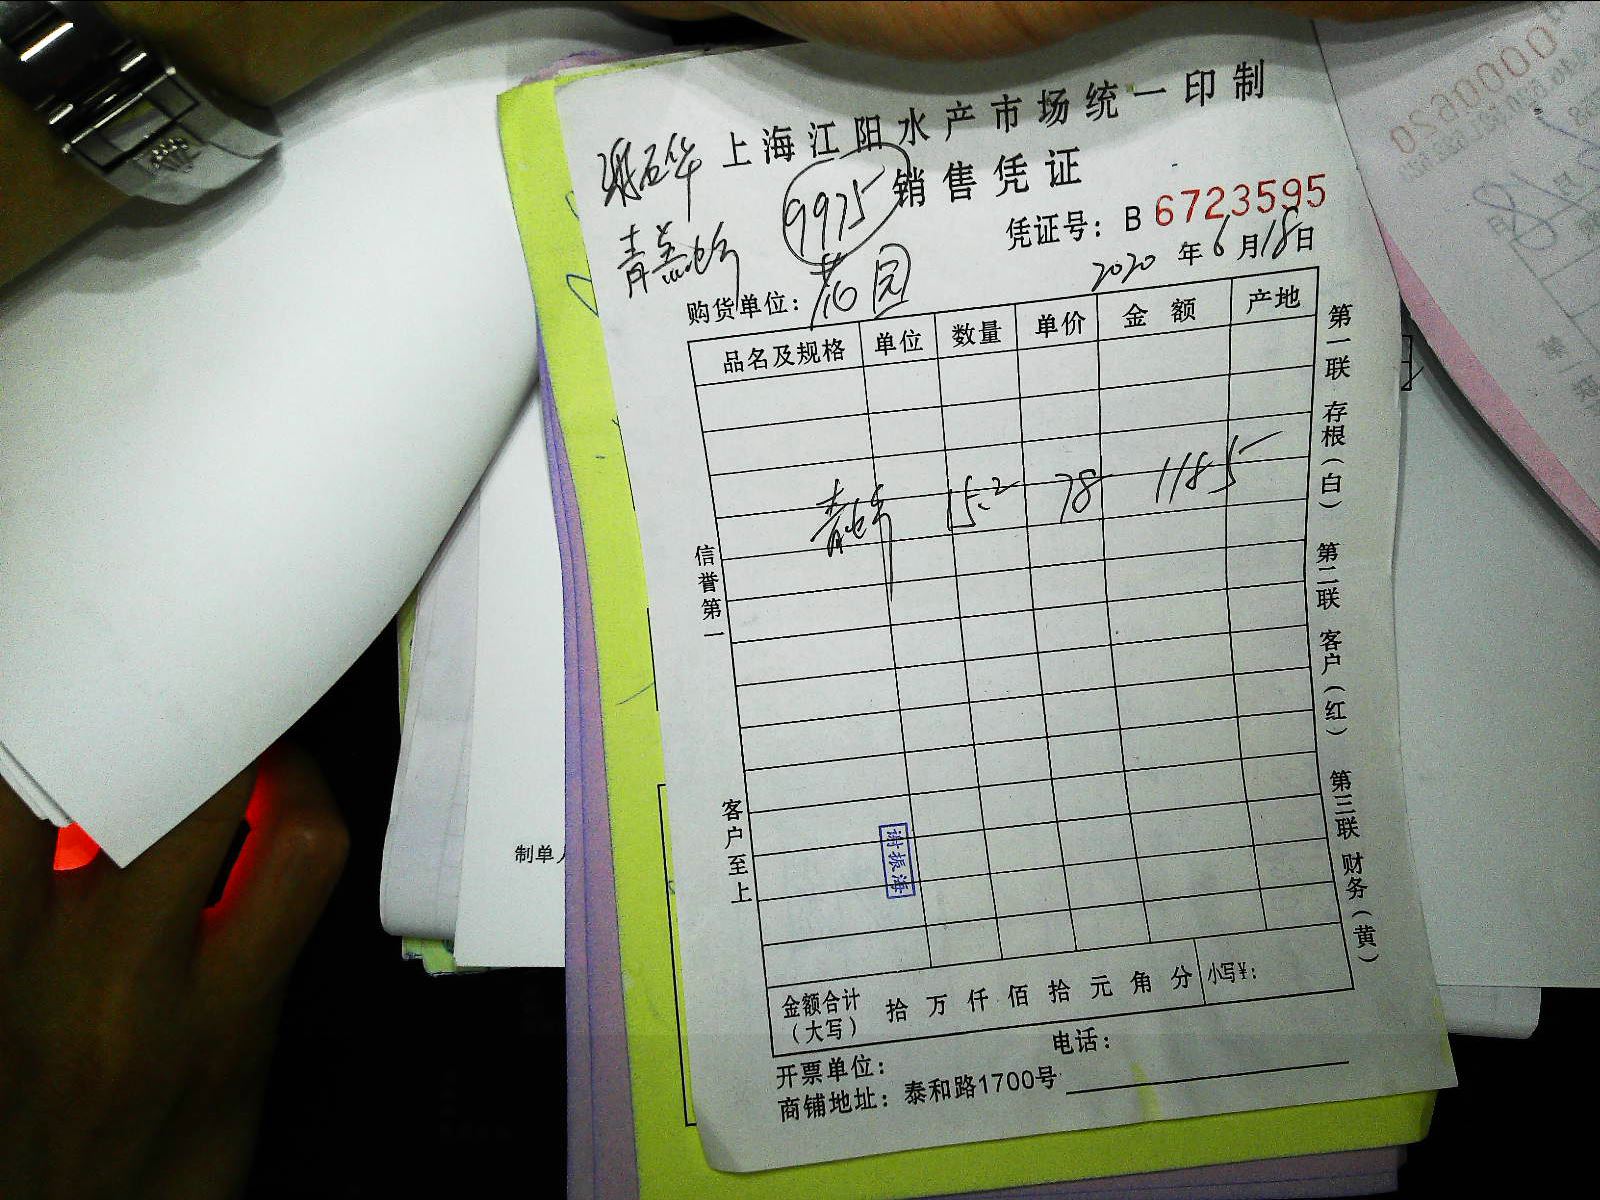 上海江阳水产市场统一印制
销售凭证
9975
凭证号：B 6723595
2020年6月18日
购货单位：花园
品名及规格 单位 数量 单价 金额 产地
15.2 78 1185
信誉第一
客户至上
谢振海
第一联 存根（白） 第二联 客户（红） 第三联 财务（黄）
金额合计（大写） 拾 万 仟 佰 拾 元 角 分 小写¥：
开票单位： 电话：
商铺地址：泰和路1700号
制单人